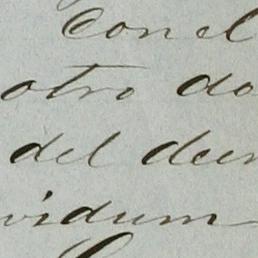 Con el
otro do
del deer
vidum